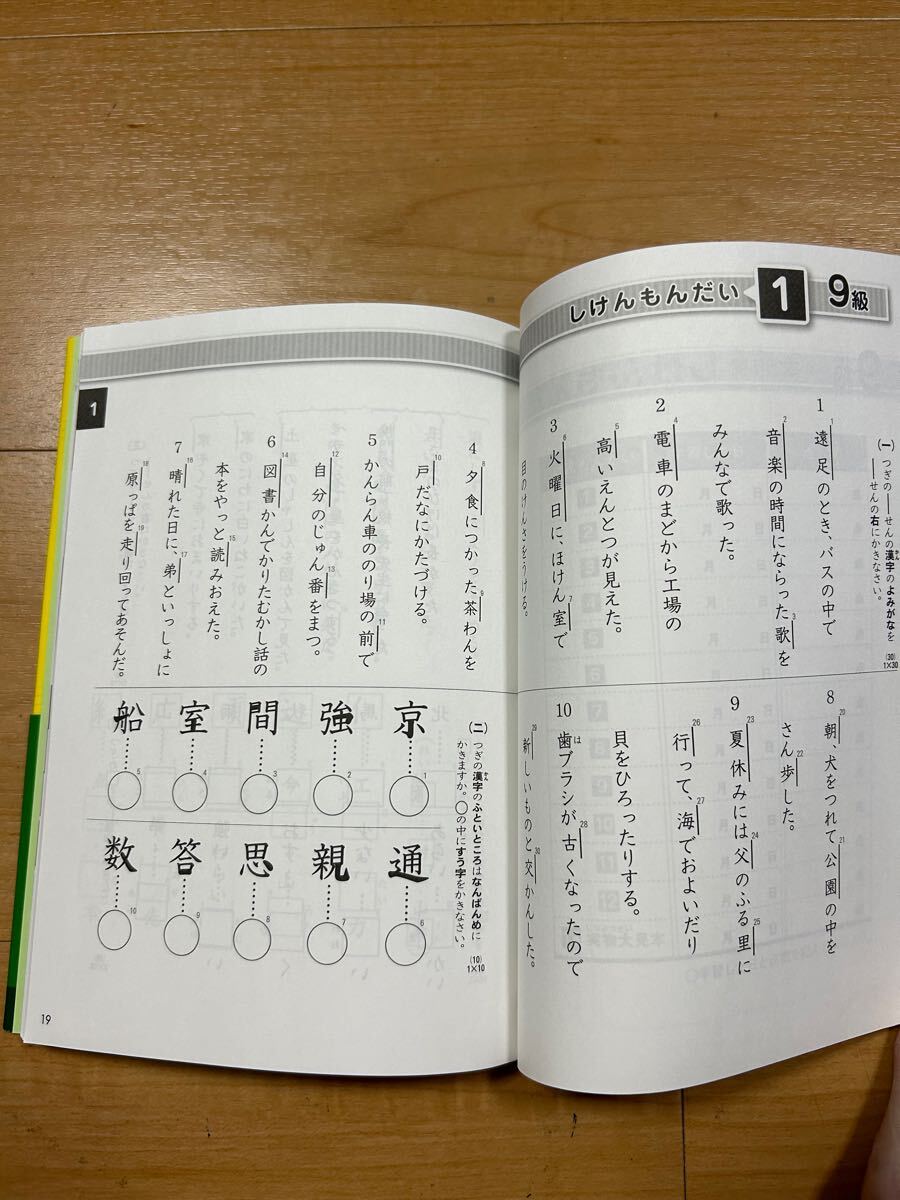 しけんもんだい 1 9級
(一) つぎの――せんの漢字のよみがなを
――せんの右にかきなさい。
かん
(30)
1×30
1 遠足のとき、バスの中で
音楽の時間にならった歌を
みんなで歌った。
2 電車のまどから工場の
高いえんとつが見えた。
3 火曜日に、ほけん室で
目のけんさをうける。
8 朝、犬をつれて公園の中を
さん歩した。
9 夏休みには父のふる里に
行って、海でおよいだり
貝をひろったりする。
10 歯ブラシが古くなったので
は
新しいものと交かんした。
1
4 夕食につかった茶わんを
戸だなにかたづける。
5 かんらん車ののり場の前で
自分のじゅん番をまつ。
6 図書かんでかりたむかし話の
本をやっと読みおえた。
7 晴れた日に、弟といっしょに
原っぱを走り回ってあそんだ。
(二) つぎの漢字のふといところはなんばんめに
かきますか。○の中にすう字をかきなさい。
かん
(10)
1×10
京 1
強 2
間 3
室 4
船 5
通 6
親 7
思 8
答 9
数 10
19